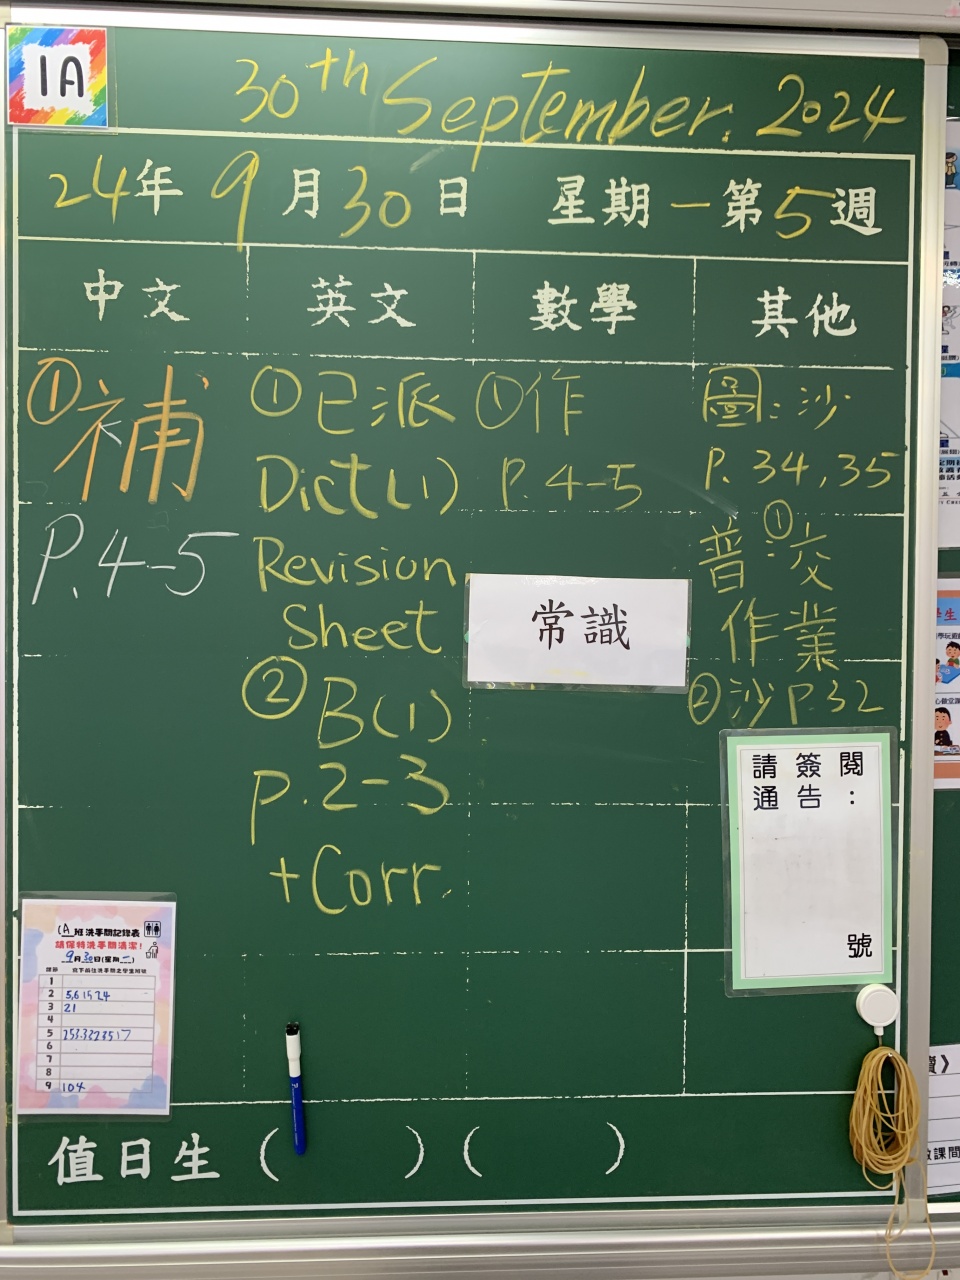 1A
30th September, 2024
24年 9月30日 星期一第5週
中文
英文
數學
其他
①補
P.4-5
①已派
Dict(1)
Revision
Sheet
②B(1)
p.2-3
+Corr.
①作
P.4-5
常識
圖:沙
P.34,35
普:①交
作業
②沙P.32
請簽閱
通告：
號
1A班洗手間記錄表
請保持洗手間清潔!
9月30日(星期一)
1
2
3 21
4
5
6
7
8
9 104
值日生 (    ) (    )